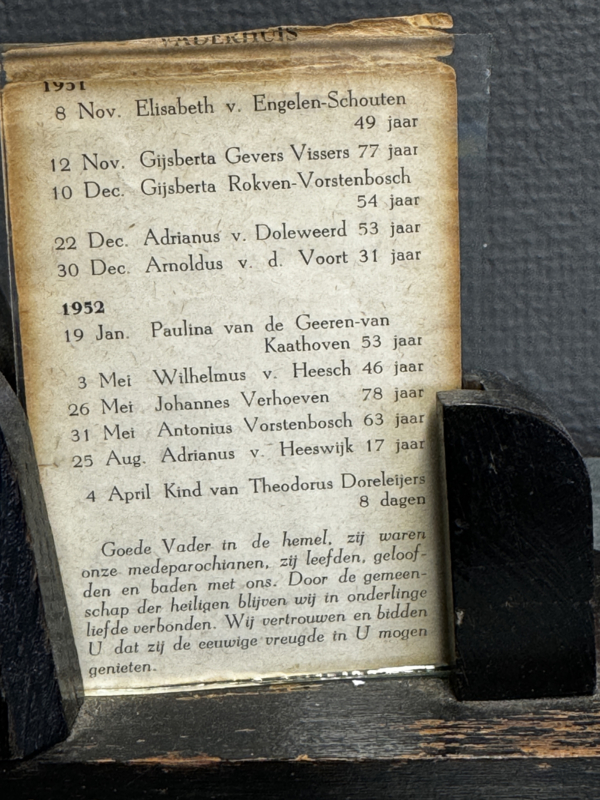 VADERHUIS
1951
8 Nov. Elisabeth v. Engelen-Schouten
49 jaar
12 Nov. Gijsberta Gevers Vissers 77 jaar
10 Dec. Gijsberta Rokven-Vorstenbosch
54 jaar
22 Dec. Adrianus v. Doleweerd 53 jaar
30 Dec. Arnoldus v. d. Voort 31 jaar
1952
19 Jan. Paulina van de Geeren-van
Kaathoven 53 jaar
3 Mei Wilhelmus v. Heesch 46 jaar
26 Mei Johannes Verhoeven 78 jaar
31 Mei Antonius Vorstenbosch 63 jaar
25 Aug. Adrianus v. Heeswijk 17 jaar
4 April Kind van Theodorus Doreleijers
8 dagen
Goede Vader in de hemel, zij waren
onze medeparochianen, zij leefden, geloof-
den en baden met ons. Door de gemeen-
schap der heiligen blijven wij in onderlinge
liefde verbonden. Wij vertrouwen en bidden
U dat zij de eeuwige vreugde in U mogen
genieten.